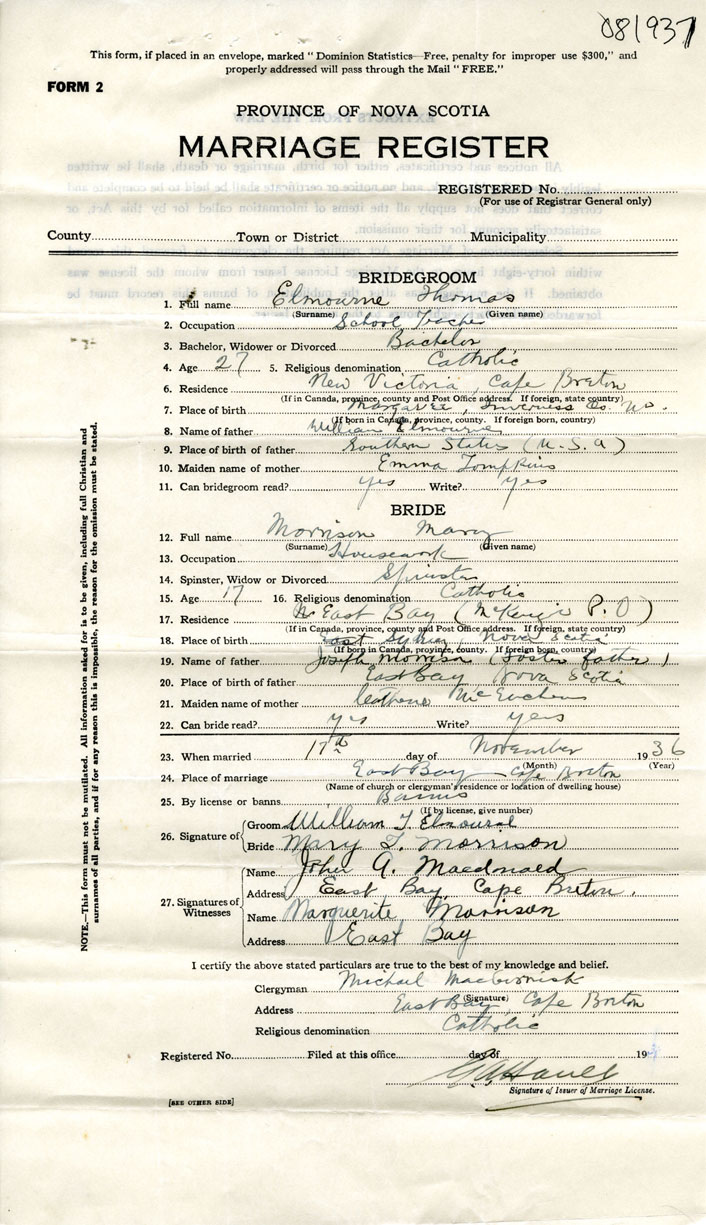 081937
This form, if placed in an envelope, marked "Dominion Statistics—Free, penalty for improper use $300," and
properly addressed will pass through the Mail "FREE."
FORM 2
PROVINCE OF NOVA SCOTIA
MARRIAGE REGISTER
REGISTERED No.
(For use of Registrar General only)
County Town or District Municipality
BRIDEGROOM
1. Full name Elmourne Thomas
(Surname) (Given name)
2. Occupation School Teacher
3. Bachelor, Widower or Divorced Bachelor
4. Age 27 5. Religious denomination Catholic
6. Residence New Victoria, Cape Breton
(If in Canada, province, county and Post Office address. If foreign, state country)
7. Place of birth Margaree, Inverness Co. N.S.
(If born in Canada, province, county. If foreign born, country)
8. Name of father William Elmourne
9. Place of birth of father Southern States (U.S.A)
10. Maiden name of mother Emma Tompkins
11. Can bridegroom read? yes Write? yes
BRIDE
12. Full name Morrison Mary
(Surname) (Given name)
13. Occupation Housework
14. Spinster, Widow or Divorced Spinster
15. Age 17 16. Religious denomination Catholic
17. Residence East Bay (McKenzie P.O)
(If in Canada, province, county and Post Office address. If foreign, state country)
18. Place of birth East Sydney, Nova Scotia
(If born in Canada, province, county. If foreign born, country)
19. Name of father Joseph Morrison (foster father)
20. Place of birth of father East Bay, Nova Scotia
21. Maiden name of mother Catherine McEachern
22. Can bride read? yes Write? yes
23. When married 17th day of November 1936
(Month) (Year)
24. Place of marriage East Bay Cape Breton
(Name of church or clergyman's residence or location of dwelling house)
25. By license or banns Banns
(If by license, give number)
26. Signature of Groom William T. Elmourne
Bride Mary T. Morrison
27. Signatures of Witnesses Name John A. Macdonald
Address East Bay, Cape Breton.
Name Marguerite Morrison
Address East Bay
I certify the above stated particulars are true to the best of my knowledge and belief.
Clergyman Michael
(Signature)
Address East Bay, Cape Breton
Religious denomination Catholic
Registered No. Filed at this office day of 19
Signature of Issuer of Marriage License.
[SEE OTHER SIDE]
NOTE.—This form must not be mutilated. All information asked for is to be given, including full Christian and
surnames of all parties, and if for any reason this is impossible, the reason for the omission must be stated.